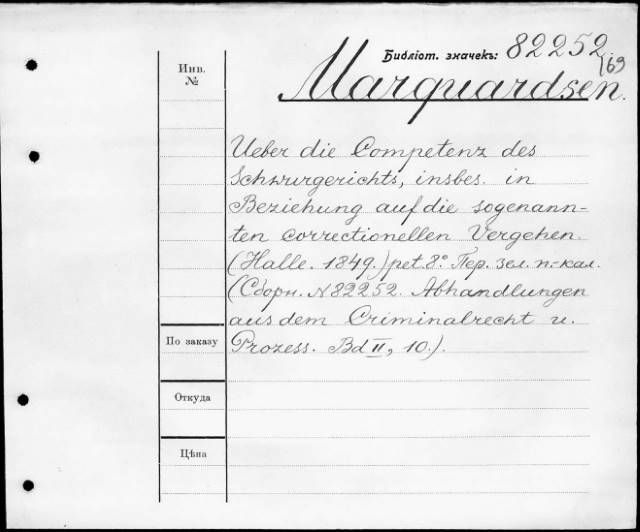 Библіот. значекъ: 82252
169
Marquardsen.
Инв.
№
Ueber die Competenz des
Schwurgerichts, insbes. in
Beziehung auf die sogenann-
ten correctionellen Vergehen.
(Halle. 1849.) pet. 8° Пер. зел. п.-кал.
(Сборн. N 82252. Abhandlungen
aus dem Criminalrecht u.
Prozess. Bd II, 10.).
По заказу
Откуда
Цѣна